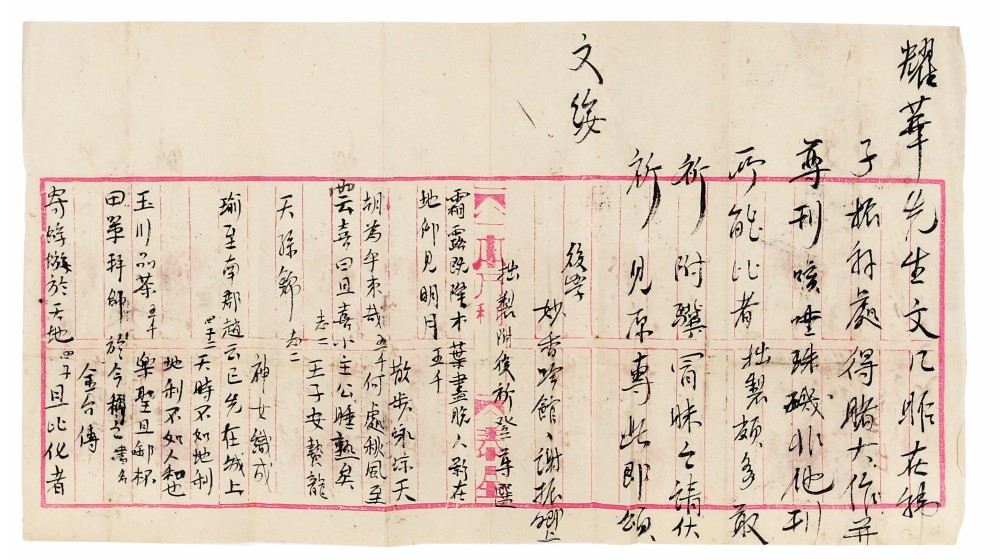 耀華先生文几昨在楊
子振我處得賭大作并
尊刊咳唾珠璣非他刊
所能比者拙製頗多敢
祈附驥冒昧之請伏
祈見原專此即頌
文綏
後學
妙香吟館謝振
拙製附後祈登尊選
霜露既降木葉盡脫人影在
地仰見明月 五千
散步詠涼天
胡為乎來哉 五千 何處秋風至
雲喜曰且喜小主公睡熟矣
志二 王子安贅龍
天孫錦 志二
神女織成
瑜至南郡趙云已先在城上
四十三 天時不如地利
地利不如人和也
玉川品茶 五千 樂聖且銜杯
田單拜師 於今稱之 書名
金台傳
寄蜉蝣於天地 四子 且比化者